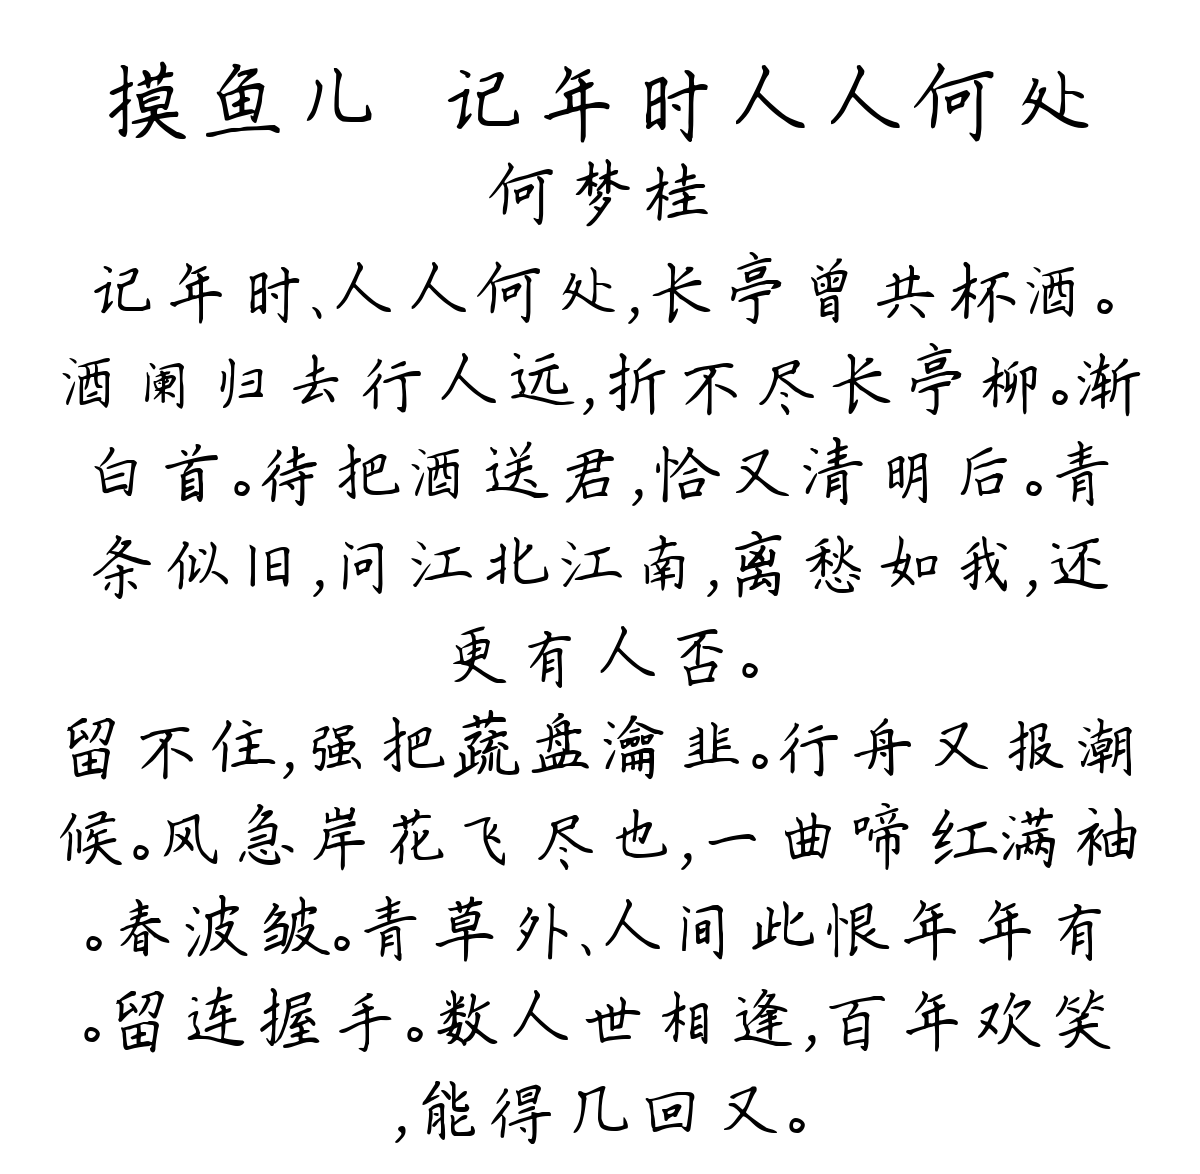 摸鱼儿 记年时人人何处
何梦桂
记年时、人人何处,长亭曾共杯酒。
酒阑归去行人远,折不尽长亭柳。渐
白首。待把酒送君,恰又清明后。青
条似旧,问江北江南,离愁如我,还
更有人否。
留不住,强把蔬盘瀹韭。行舟又报潮
候。风急岸花飞尽也,一曲啼红满袖
。春波皱。青草外、人间此恨年年有
。留连握手。数人世相逢,百年欢笑
,能得几回又。